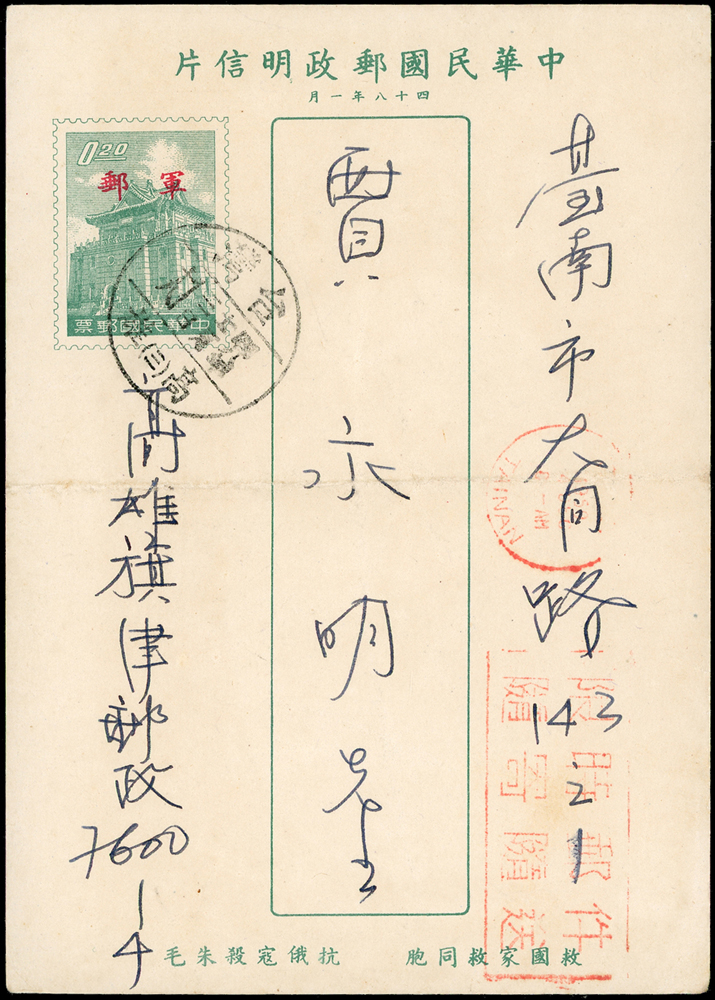 中華民國郵政明信片
四十八年一月
0.20
軍郵
中華民國郵票
臺南市大同路143之1
賈永明先生
高雄旗津郵政7600-4
TAINAN
限時郵件
隨寄隨送
救國家救同胞 抗俄寇殺朱毛